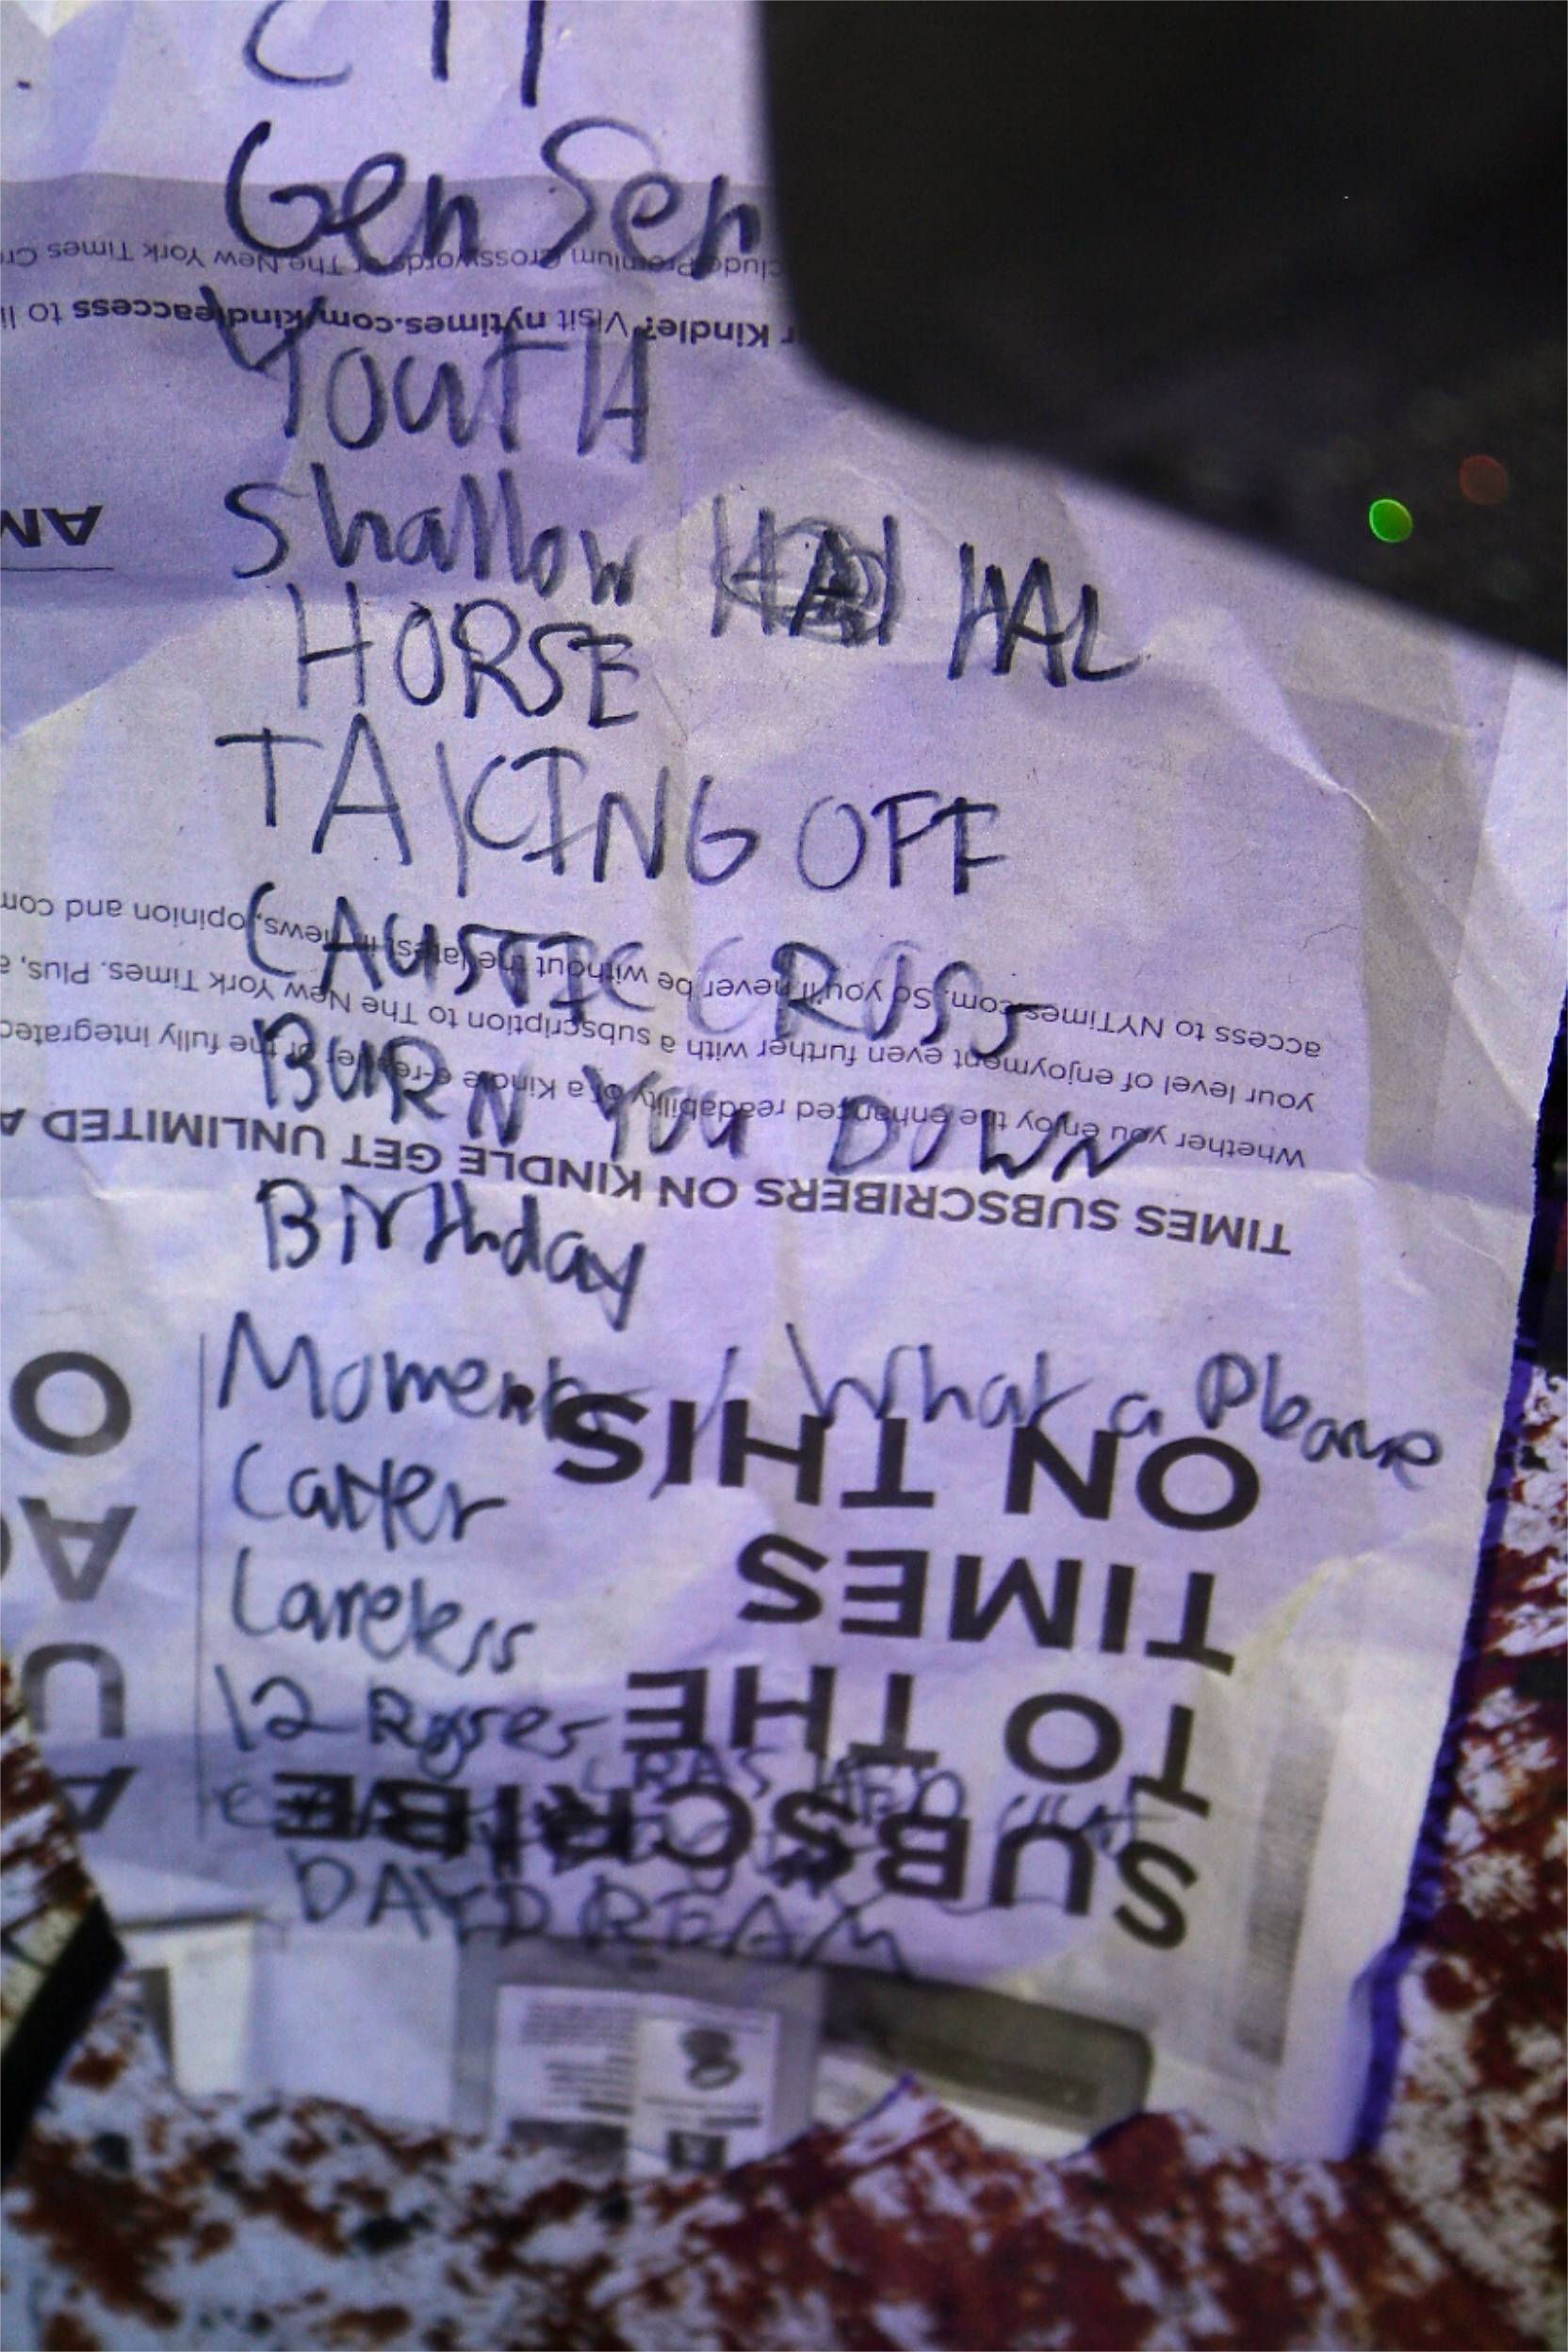 Gen Sen
clude Premium Crosswords or The New York Times Cr
r Kindle? Visit nytimes.com/kindleaccess to li
Youth
Shallow HAL
HORSE
AM
TAKING OFF
CAUSTIC CROSS
access to NYTimes.com. So you'll never be without the latest in news, opinion and com
your level of enjoyment even further with a subscription to The New York Times. Plus, a
BURN YOU DOWN
Whether you enjoy the enhanced readability of a Kindle e-reader or the fully integrated
TIMES SUBSCRIBERS ON KINDLE GET UNLIMITED A
Birthday
Moments / What a Pleasure
ON THIS
Carter
TIMES
Careless
TO THE
12 Roses
CRASHED OUT
SUBSCRIBE
DAYDREAM